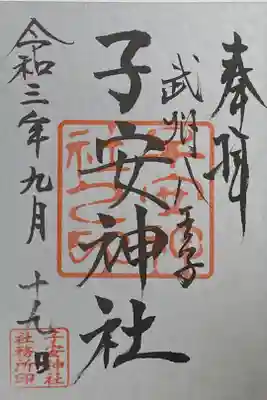 奉拝
武州八王子
子安神社
令和三年九月十九日
子安神社
社務所印